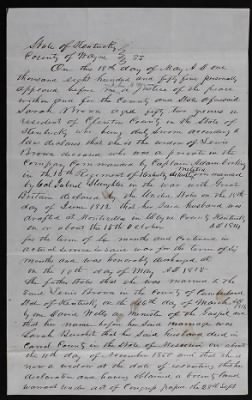 State of Kentucky
County of Wayne SS
On this 18th day of May A D one
thousand eight hundred and fifty five personally
appeared before me a Justice of the peace
within and for the County and State aforesaid
Sarah Brown aged fifty two years a
resident of Clinton County in the State of
Kentucky who being duly sworn according to
law declares that she is the widow of Lewis
Brown deceased who was a private in the
Company Commanded by Captain Adam
in the 15th Regiment of Kentucky Militia commanded
by Col Gabriel Slaughter in the war with Great
Britain declared by the United States on the 18th
day of June 1812 that her said husband was
drafted at Monticello in Wayne County Kentucky
on or about the 15th October A D 1814
for the term of six months and continued in
actual service in said war for the term of six
months and was honorably discharged at
on the 10th day of May A D 1815
She further states that she was married to the
said Lewis Brown in the County of Cumberland
State of Kentucky on the 26th day of March
by one David a Minister of the Gospel and
that her name before her said marriage was
Sarah that her said husband died in
Carroll County in the State of Missouri on about
the day of November 1850 and that she is
now a widow she
declaration for the purpose of obtaining a bounty land
warrant under act of Congress passed the 28th Sept